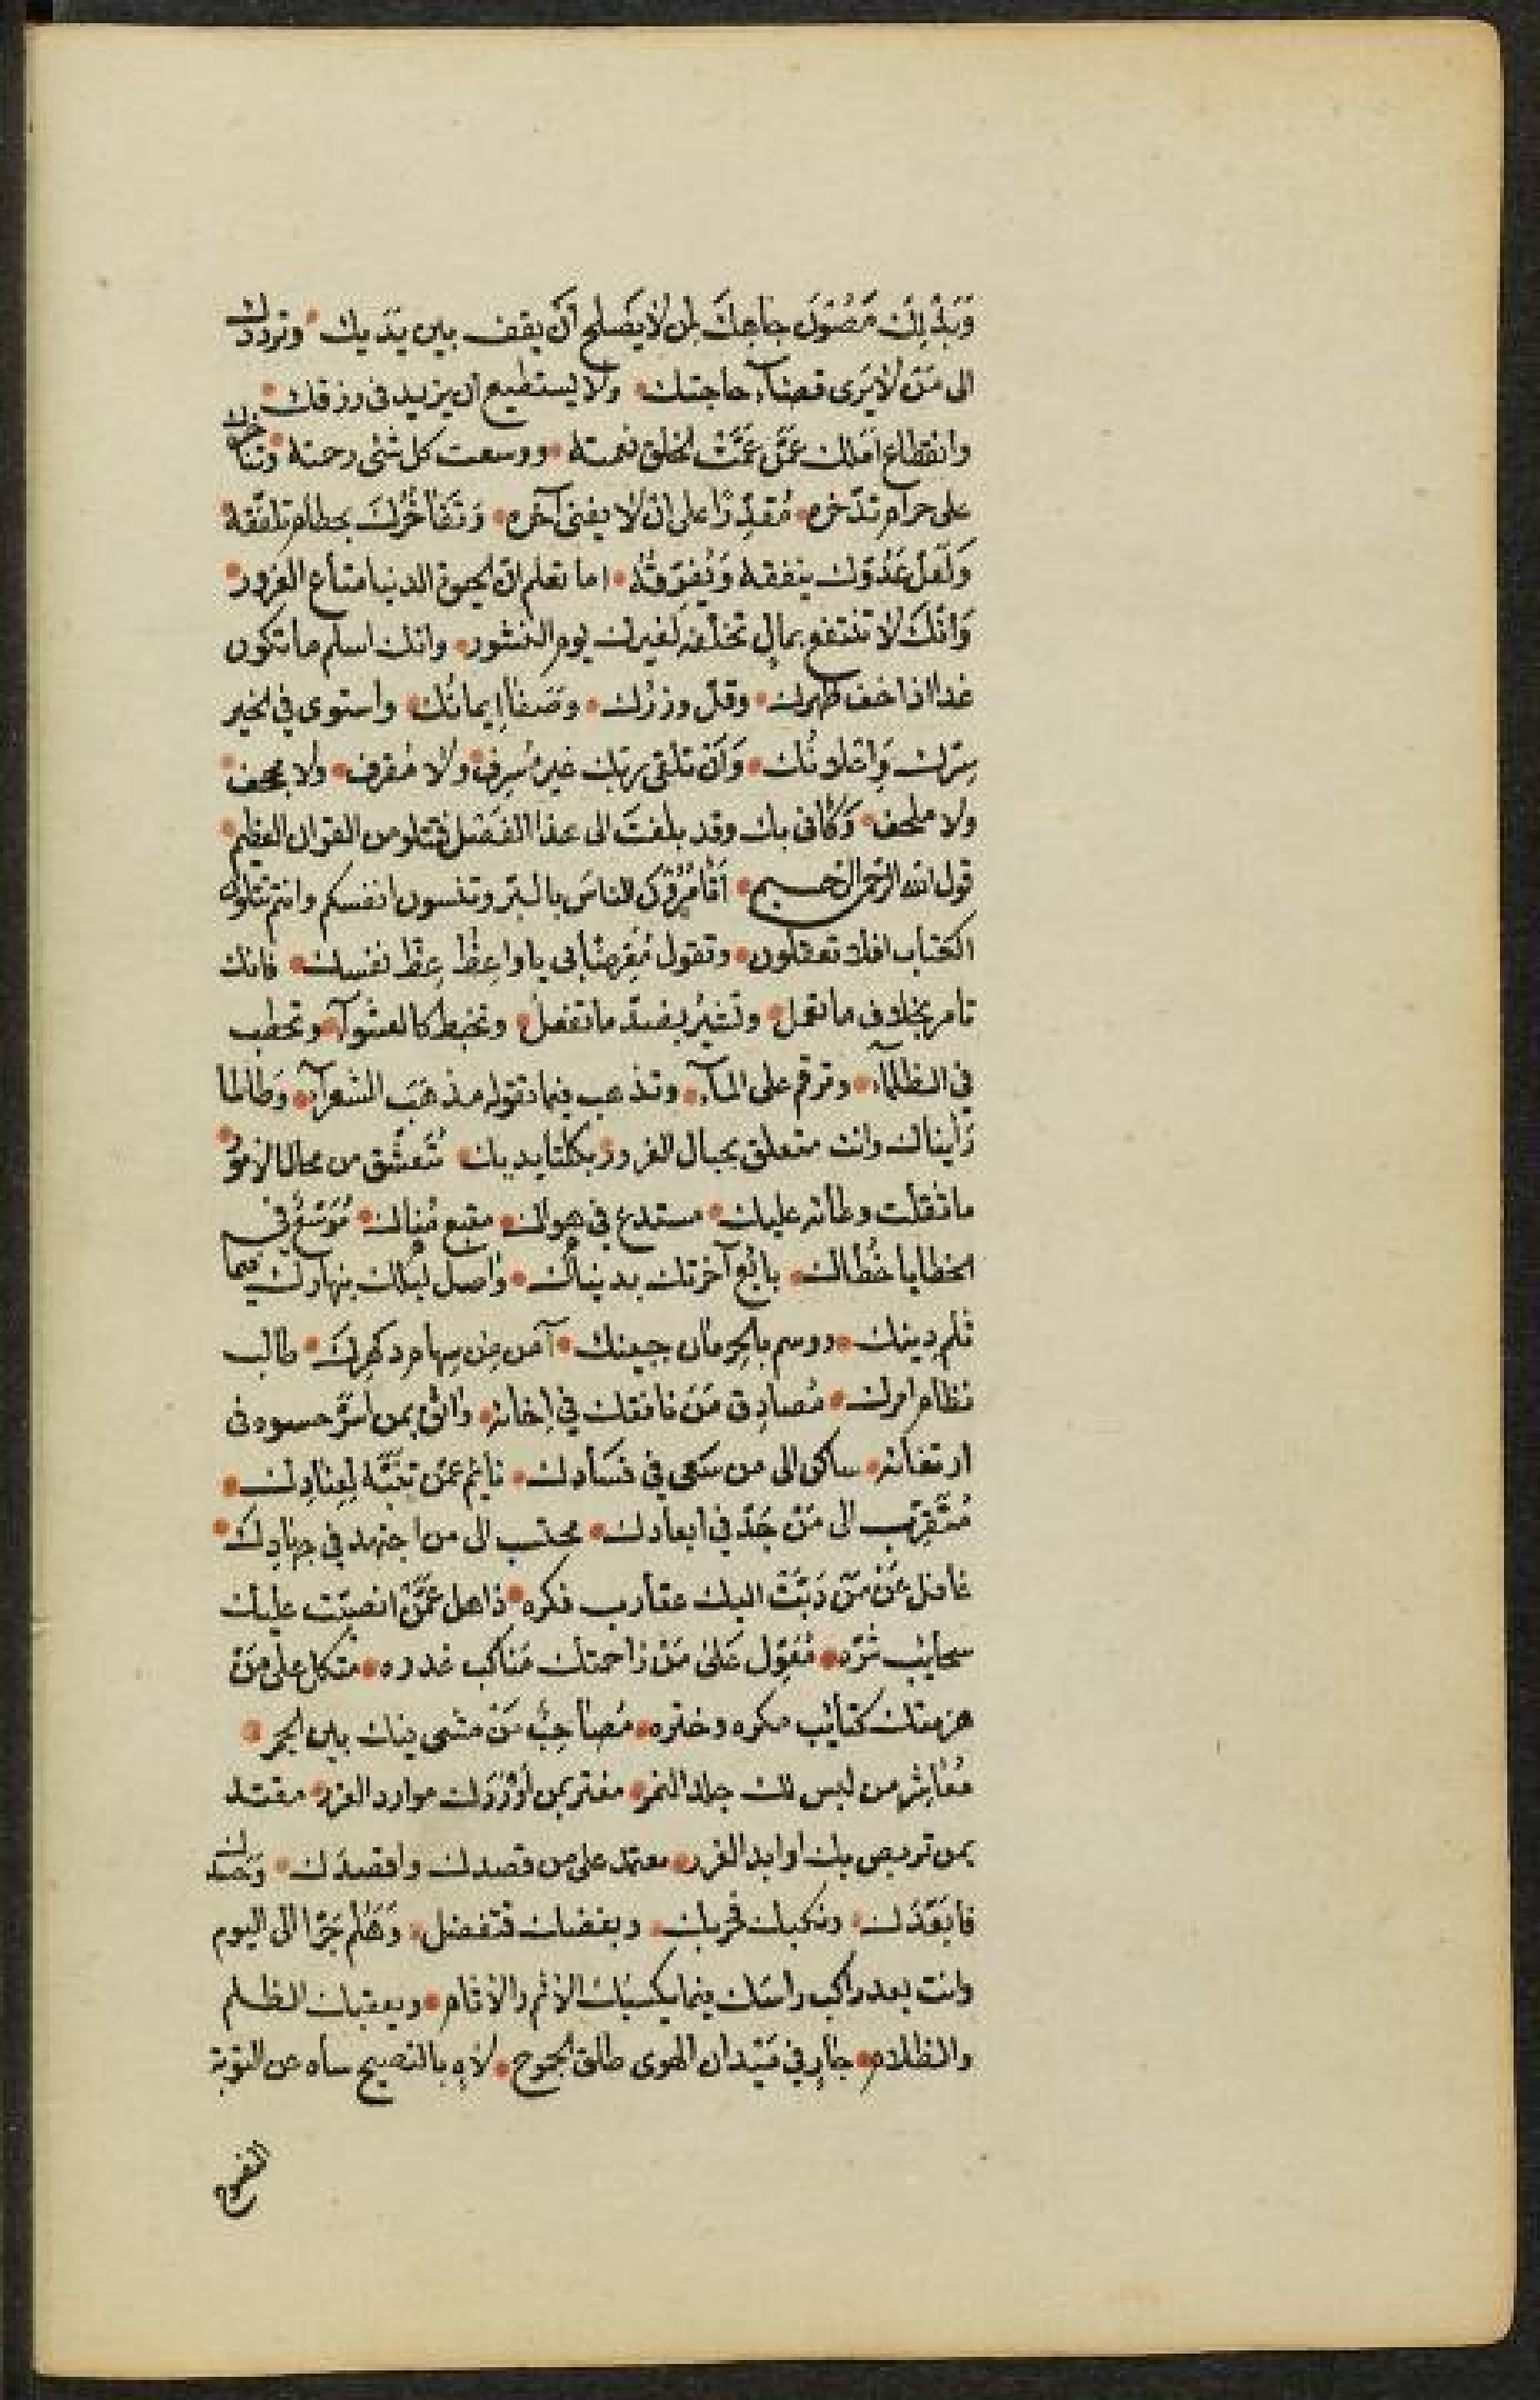 وَبَذْلِكَ مَصُوْنَ جاهِكَ لمن لا يَصلح أن يقف بين يَدَيك • وتردّدك
الى مَنْ لا يَرى قضاء حاجتك • ولا يستطيع ان يزيد في رزقك •
وانقطاع املك عَمَّنْ عَمَّتْ الخلق نعمته • ووسعت كل شئ رحمته •
على حرام تدّخره • مُقدِّرًا على ان لا يفنى آخره • وَتَفَاخُرُكَ بحطام تلفّقه •
وَلَعَلَّ عَدُوّك ينفقه وَيُفرّقُه • اما تعلم انّ الحيوة الدنيا متاع الغرور •
وَانّكَ لا تنتفع بمالٍ تخلّفه لغيرك يوم النشور • وانك اسلم ما تكون
غدا اذا خف ظهرك • وقلّ وزرُك • وَصَفَا إيمانُك • واستوى في الخير
سِرّك وَاعلانُك • وَاَنْ تلقى ربّك غير مُسرِف • ولا مُقرف • ولا مجحف •
ولا ملحف • وَكَأنى بك وقد بلغتَ الى هذا الفَصْل تتلو من القرآن العظيم •
قول الله الرحمن الرحيم • أتَأمُرُوْنَ الناسَ بالبّر وتنسون انفسكم وانتم تتلون
الكتاب افلا تعقلون • وتقول مُعَرِضًا بى يا واعِظُ عِظْ نفسك • فانك
تامر بخلاف ما تعمل • وتُشِيْرُ بضدّ ما تفعل • وتخبط كالعشوآء • وتحطب
في الظلمآء • وترقم على المآء • وتذهب فيما تقوله مذهَبَ الشعرآء • وَطالما
رَأيناك وانت متعلق بحبال الغرور بكلتا يديك • تَتَعشَّق من محالها الامو
ما ثقلت وطأته عليك • مستدع في هواك • متبع مُناك • مُوَسِّعٌ في
الخطايا خُطاك • بائع آخرتك بدنياك • واصل ليلك بنهارك فيما
ثلم دينك • ووسم بالحِرمان جبينك • آمن مِن سِهام دَهرِكَ • طالب
نظام امرك • مُصادِق مَنْ نافقك في اِخائه • واثق بمن اسَرَّ حسوه في
ارتغائه • ساكن الى من سَعى في فَسَادك • نائم عمّن تنبَّه لِعِنادِك •
مُتَقرِّب الى مَنْ جَدّ في ابعادك • محتسب الى من اجتهد في جهَادِكَ •
غافل عَنْ مَنْ دَبَّتْ اليك عقارب فكره • ذاهل عَمَّنْ انصبّت عليك
سحائب شَرّه • مُعَوِّل عَلىٰ مَنْ زاحمتك مَناكب غدره • متكل على مَنْ
هزمتك كتائب مكره وختره • مُصَاحِبٌ مَنْ مشى بينك بين الخمر •
مُعَاشِر من لبس لك جلد النمر • مغتر بمن أوْرَدَك موارد الغرر • مقتد
بمن تربص بك اوابد الغرر • معتمد على من قصدك واقصدك •
فابَعَدَك • ونكبك فخربك • وبغضك فتفضل • وَهَلُمّ جَرّا الى اليوم
وانت بعد راكب راسك فيما يكسبك الاثم والآثام • ويعقبك الظلم
والظلام • جارٍ في مَيْدان الهوى طلق الجموح • لاهٍ بالنصيح ساه عن التوبة
النصوح